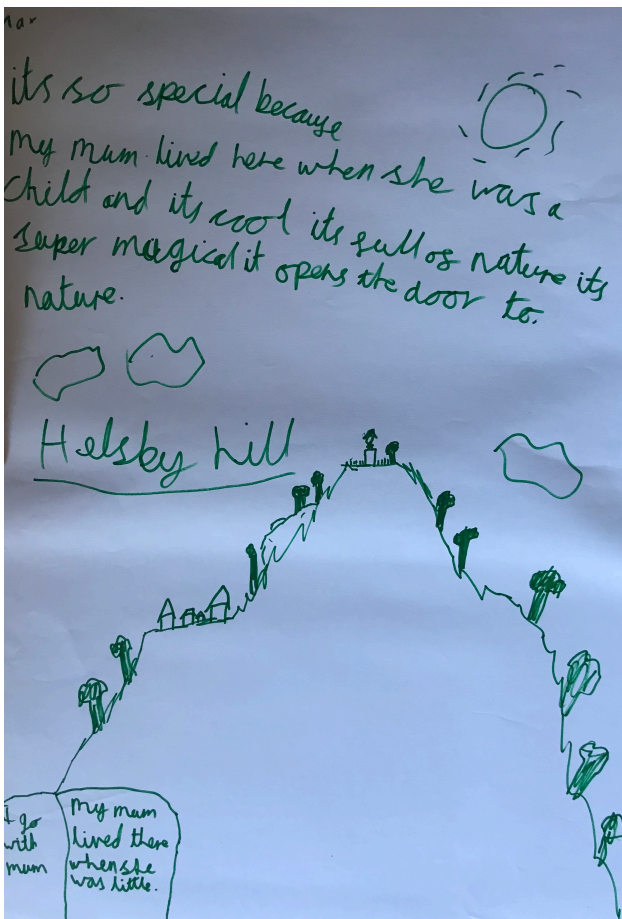 Max
its so special because
My mum lived here when she was a
child and its cool its full of nature its
super magical it opens the door to.
nature.
Helsby hill
I go
with
mum
My mum
lived there
when she
was little.